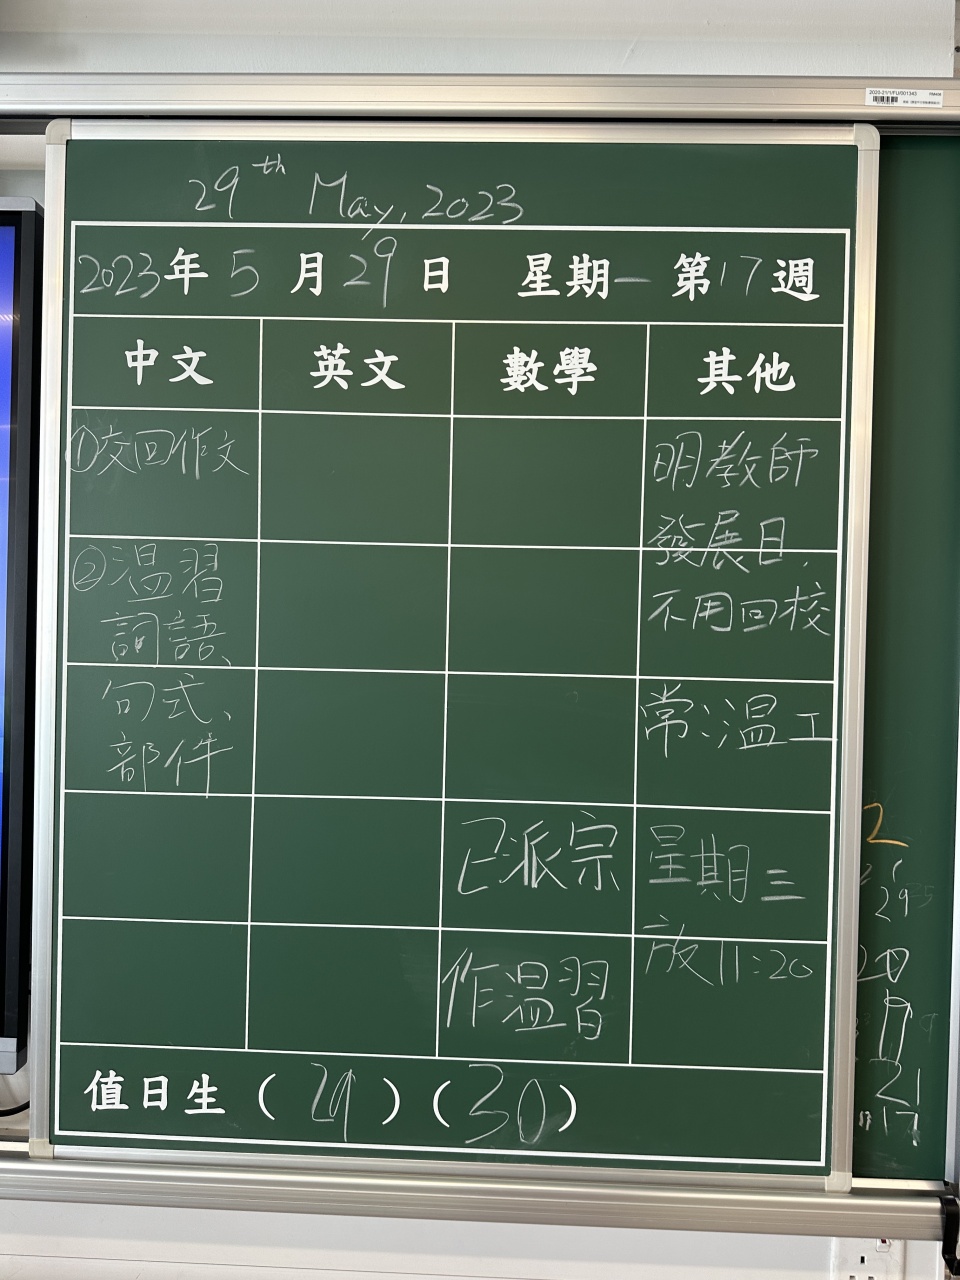 29th May, 2023
2023年5月29日 星期一 第17週
中文 英文 數學 其他
①交回作文
②温習
詞語、
句式、
部件
已派宗
作温習
明教師
發展日,
不用回校
常:温工
星期三
放11:20
值日生(29)(30)
2020-21/1/FU/001343
2
29
20
21
17